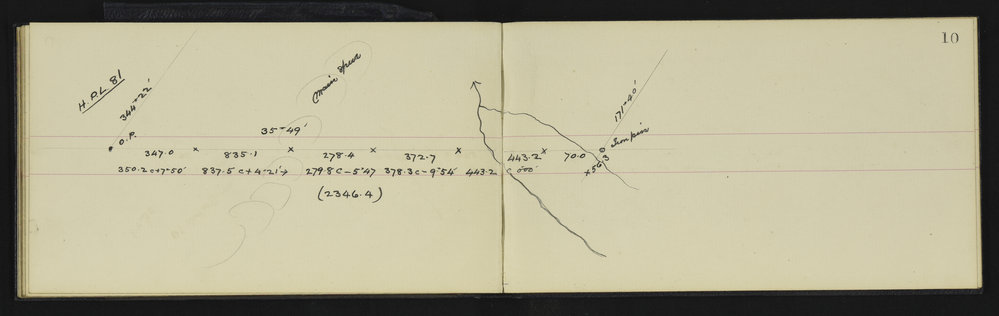 10
H.P.L 81
344-22'
Main Spur
171-40'
O.P.
35-49'
Iron pin
347.0 × 835.1 × 278.4 × 372.7 × 443.2 × 70.0
×563
350.2 c+7°50' 837.5 c+4°21' 279.8 c-5°47 378.3 c-9°54' 443.2 c 000'
(2346.4)